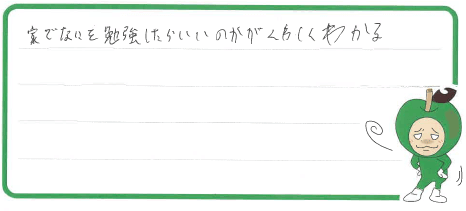 家でなにを勉強したらいいのかがくわしくわかる